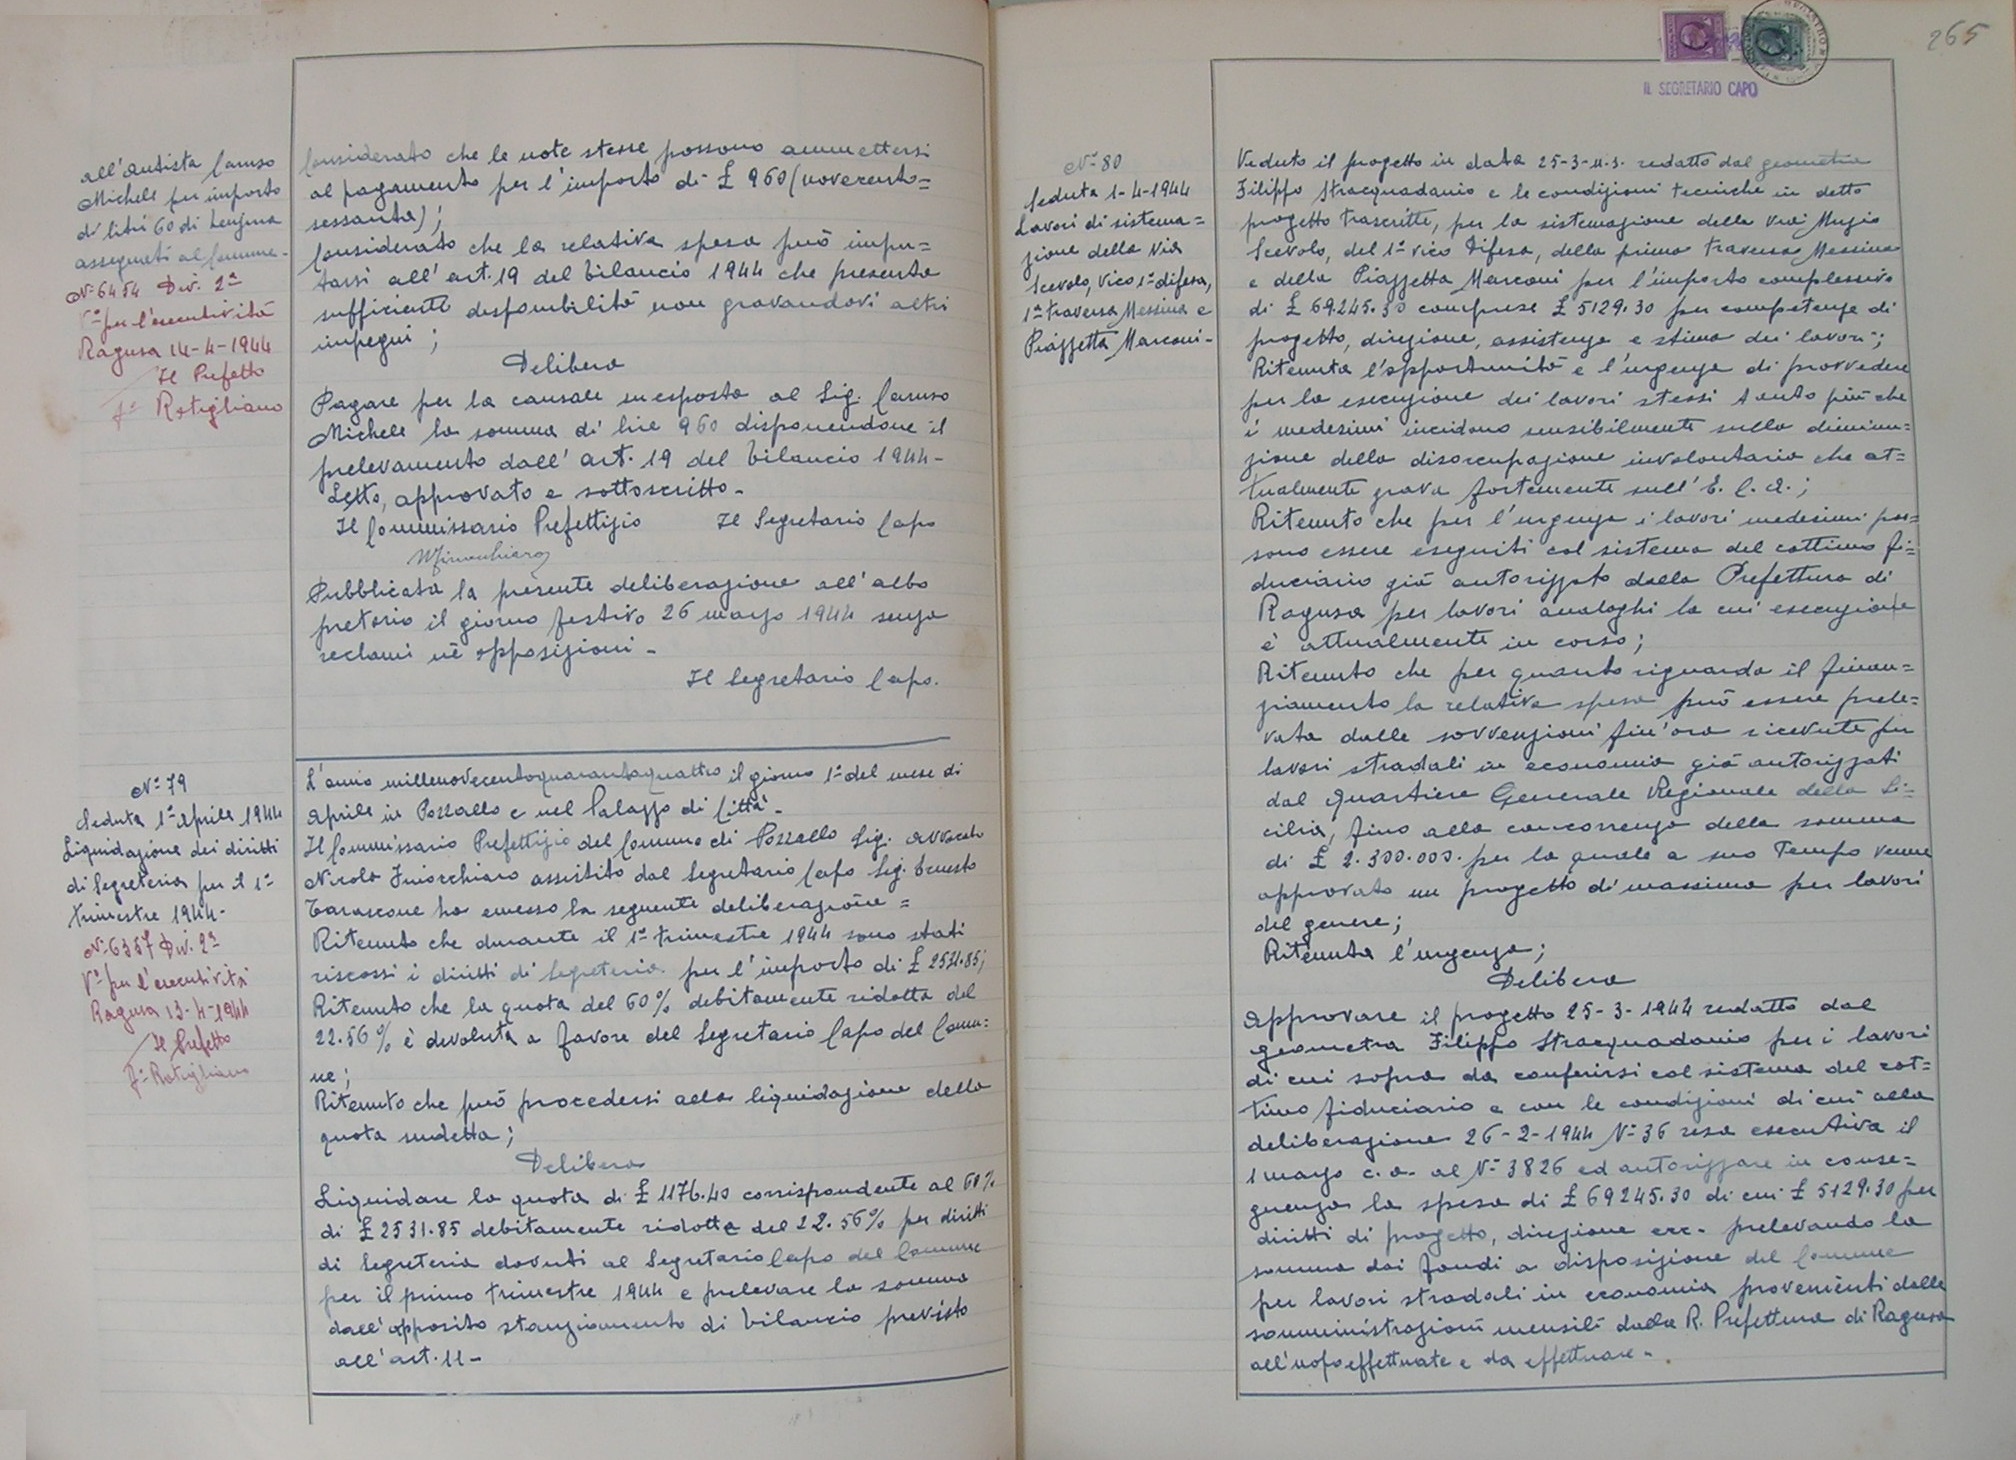 all'autista Caruso
Michele per importo
di litri 60 di benzina
assegnati al Comune-
N° 6454 Div. 2ª
V° per l'esecutività
Ragusa 14-4-1944
Il Prefetto
fº Rotigliano
Considerato che le note stesse possono ammettersi
al pagamento per l'importo di £ 960 (novecento=
sessanta);
Considerato che la relativa spesa può impu=
tarsi all'art. 19 del bilancio 1944 che presenta
sufficiente disponibilità non gravandovi altri
impegni;
Delibera
Pagare per la causale su esposta al Sig. Caruso
Michele la somma di lire 960 disponendone il
prelevamento dall'art. 19 del bilancio 1944-
Letto, approvato e sottoscritto-
Il Commissario Prefettizio Il Segretario Capo
Pubblicata la presente deliberazione all'albo
pretorio il giorno festivo 26 marzo 1944 senza
reclami nè opposizioni-
Il Segretario Capo.
N° 79
Seduta 1° Aprile 1944
Liquidazione dei diritti
di Segreteria per il 1°
trimestre 1944-
N° 6357 Div. 2ª
V° per l'esecutività
Ragusa 13-4-1944
Il Prefetto
fº Rotigliano
L'anno millenovecentoquarantaquattro il giorno 1° del mese di
Aprile in Pozzallo e nel Palazzo di Città-
Il Commissario Prefettizio del Comune di Pozzallo Sig. Avvocato
Nicola Finocchiaro assistito dal Segretario Capo Sig. Ernesto
Tarascone ha emesso la seguente deliberazione=
Ritenuto che durante il 1° trimestre 1944 sono stati
riscossi i diritti di Segreteria per l'importo di £ 2531.85;
Ritenuto che la quota del 60% debitamente ridotta del
22.56% è devoluta a favore del Segretario Capo del Comu=
ne;
Ritenuto che può procedersi alla liquidazione della
quota sudetta;
Delibera
Liquidare la quota di £ 1176.40 corrispondente al 60%
di £ 2531.85 debitamente ridotta del 22.56% per diritti
di Segreteria dovuti al Segretario Capo del Comune
per il primo trimestre 1944 e prelevare la somma
dall'apposito stanziamento di bilancio previsto
all'art. 11-
265
IL SEGRETARIO CAPO
N° 80
Seduta 1-4-1944
Lavori di sistema=
zione della Via
Scevola, Vico 1° difesa,
1ª traversa Messina e
Piazzetta Marconi-
Veduto il progetto in data 25-3-u.s. redatto dal geometra
Filippo Stracquadanio e le condizioni tecniche in detto
progetto trascritte, per la sistemazione della Via Muzio
Scevola, del 1° vico Difesa, della prima traversa Messina
e della Piazzetta Marconi per l'importo complessivo
di £ 69.245.30 comprese £ 5129.30 per competenze di
progetto, direzione, assistenza e stima dei lavori;
Ritenuta l'opportunità e l'urgenza di provvedere
per la esecuzione dei lavori stessi tanto più che
i medesimi incidono sensibilmente sulla diminu=
zione della disoccupazione involontaria che at=
tualmente grava fortemente sull'E.C.A.;
Ritenuto che per l'urgenza i lavori medesimi pos=
sono essere eseguiti col sistema del cottimo fi=
duciario già autorizzato dalla Prefettura di
Ragusa per lavori analoghi la cui esecuzione
è attualmente in corso;
Ritenuto che per quanto riguarda il finan=
ziamento la relativa spesa può essere prele=
vata dalle sovvenzioni fin'ora ricevute per
lavori stradali in economia già autorizzati
dal Quartiere Generale Regionale della Si=
cilia, fino alla concorrenza della somma
di £ 2.300.000. per la quale a suo tempo venne
approvato un progetto di massima per lavori
del genere;
Ritenuta l'urgenza;
Delibera
Approvare il progetto 25-3-1944 redatto dal
geometra Filippo Stracquadanio per i lavori
di cui sopra da conferirsi col sistema del cot=
timo fiduciario e con le condizioni di cui alla
deliberazione 26-2-1944 N° 36 resa esecutiva il
1 marzo c.a. al N° 3826 ed autorizzare in conse=
guenza la spesa di £ 69245.30 di cui £ 5129.30 per
diritti di progetto, direzione ecc. prelevando la
somma dai fondi a disposizione del Comune
per lavori stradali in economia provenienti dalle
somministrazioni mensili dalla R. Prefettura di Ragusa
all'uopo effettuate e da effettuare-